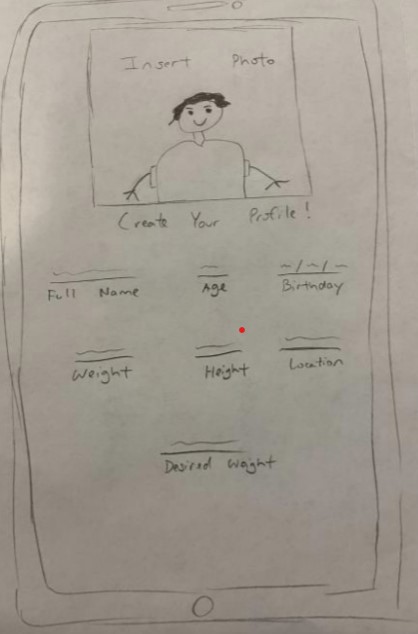 Insert Photo
Create Your Profile!
Full Name Age Birthday
Weight Height Location
Desired Weight